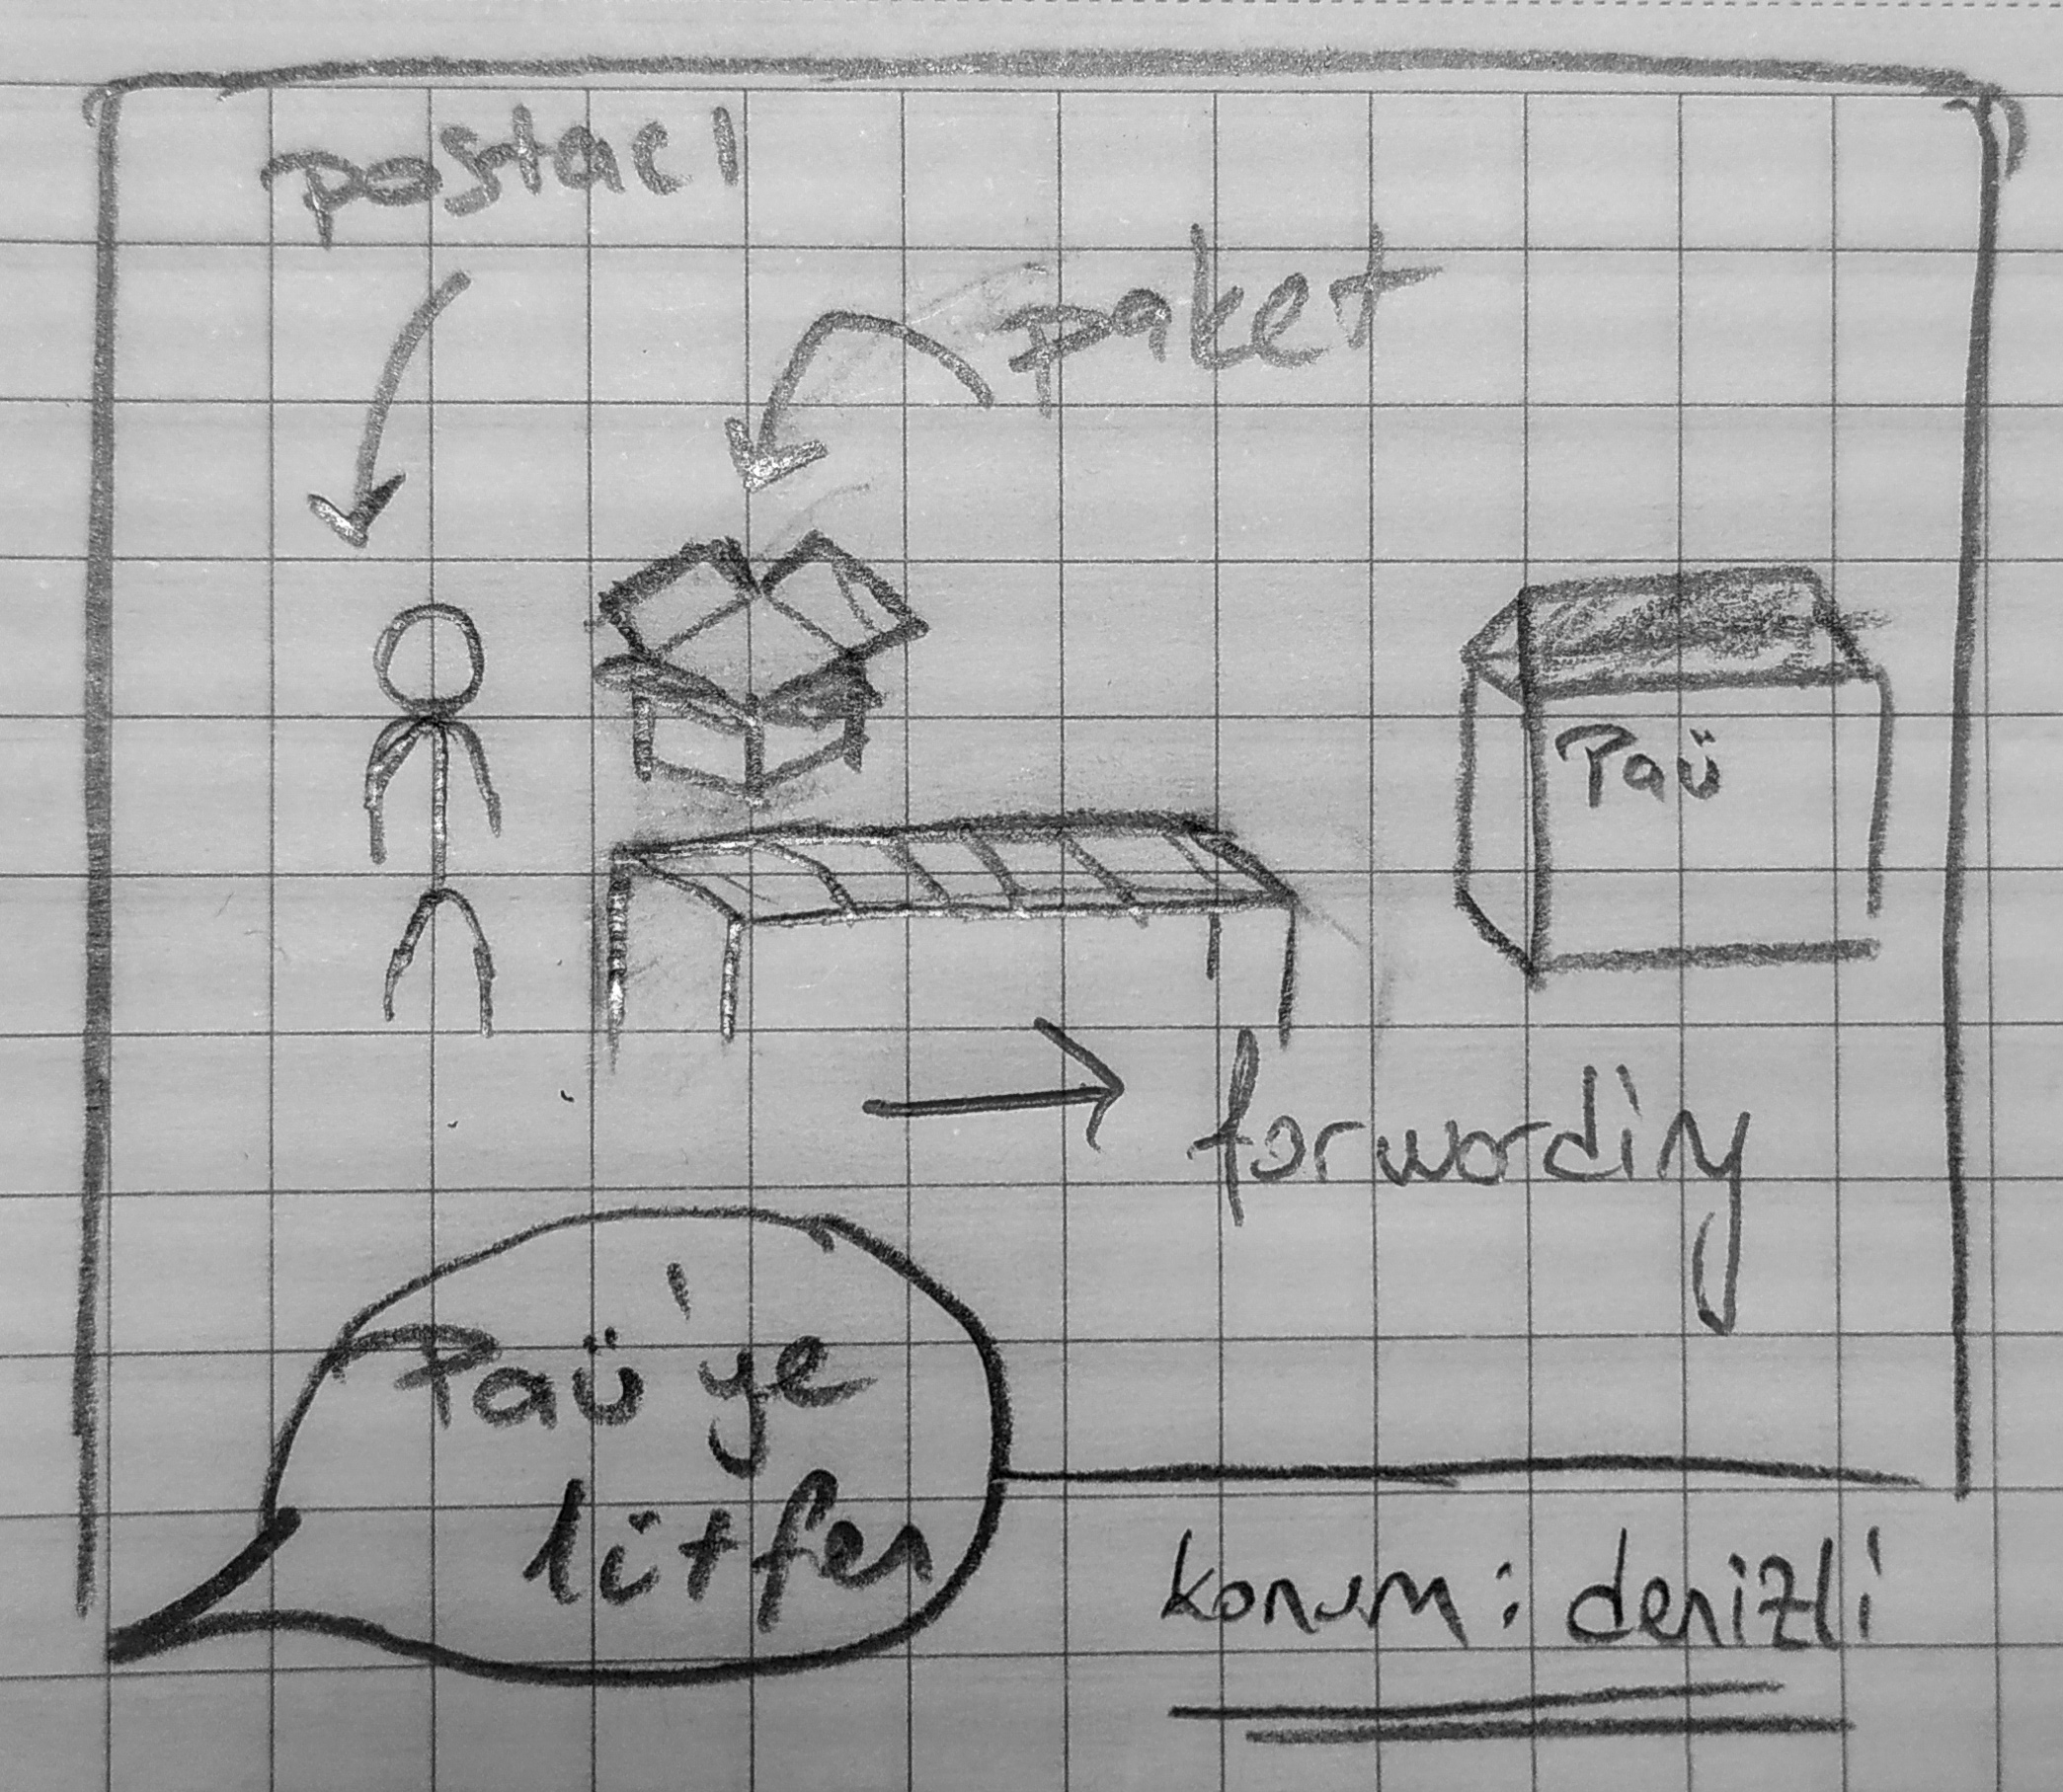 postacı
paket
Paü
forwording
Paü'ye
lütfen
konum: denizli